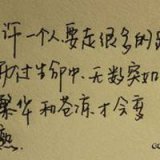 许一个人要走很多的路
历过生命中无数突如
繁华和苍凉才会变
熟